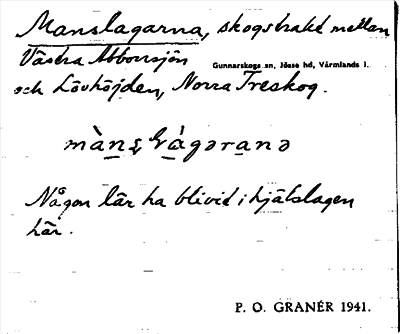 Manslagarna, skogstrakt mellan
Västra Abborrsjön Gunnarskogs sn, Jösse hd, Värmlands l.
och Lövhöjden, Norra Treskog.
Någon lär ha blivid ihjälslagen
här.
P. O. GRANÉR 1941.